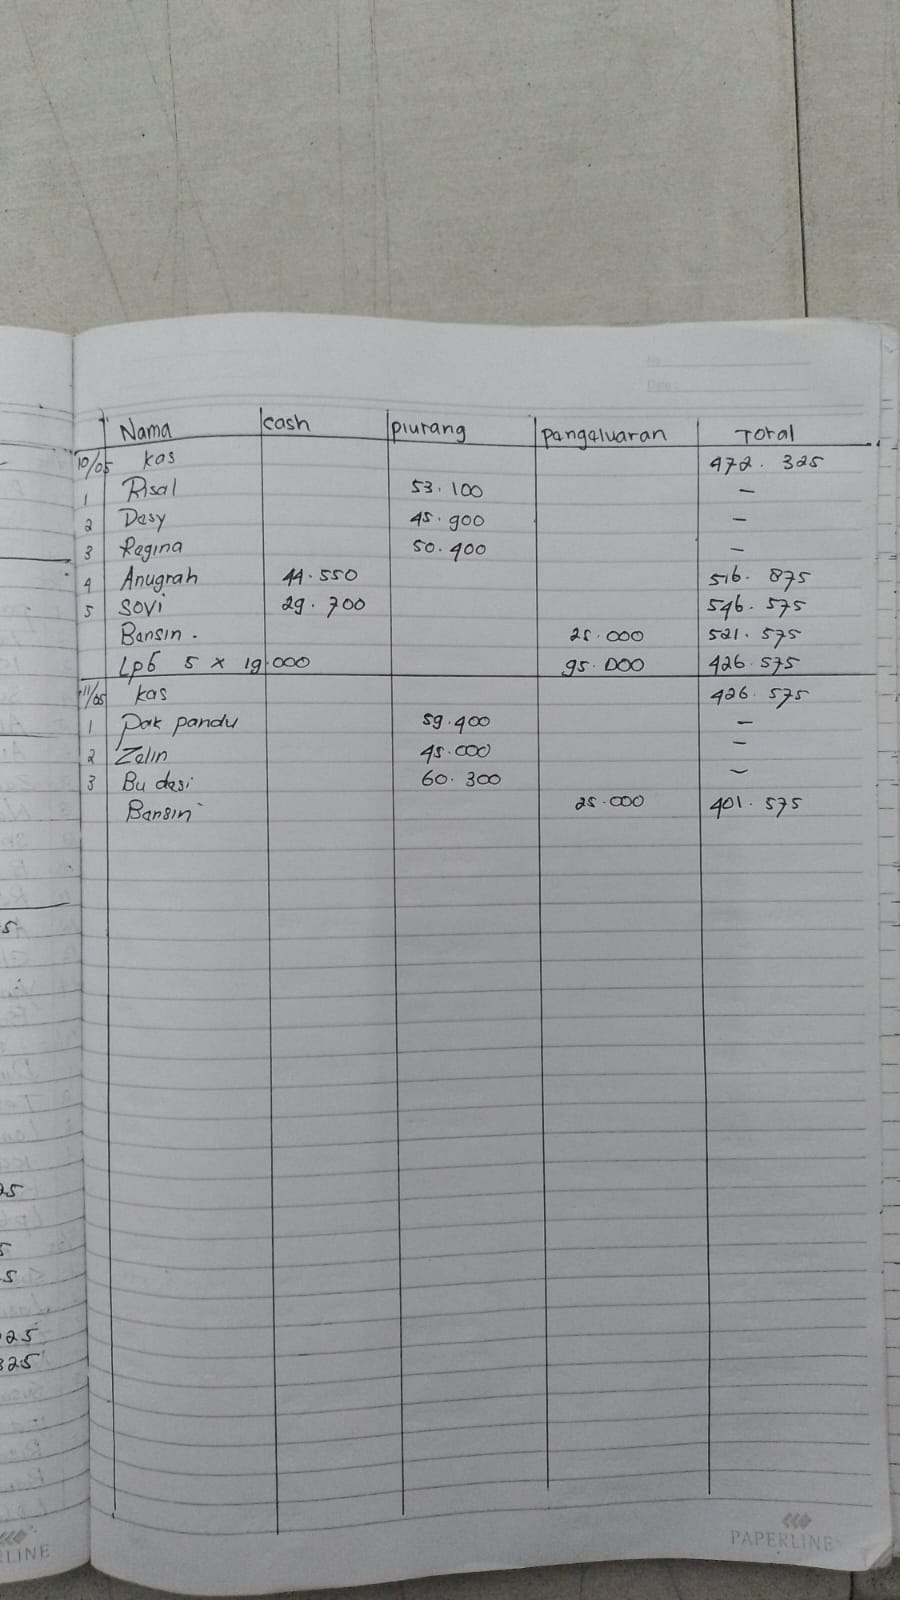 No
Date
Nama cash piutang pengeluaran Total
10/05 kas 472.325
1 Risal 53.100 -
2 Desy 45.900 -
3 Regina 50.400 -
4 Anugrah 44.550 516.875
5 Sovi 29.700 546.575
Bensin. 25.000 521.575
Lpg 5 x 19.000 95.000 426.575
11/05 kas 426.575
1 pak pandu 59.400 -
2 Zelin 45.000 -
3 Bu desi 60.300 -
Bensin 25.000 401.575
PAPERLINE
5
25
5
5
025
325
RLINE